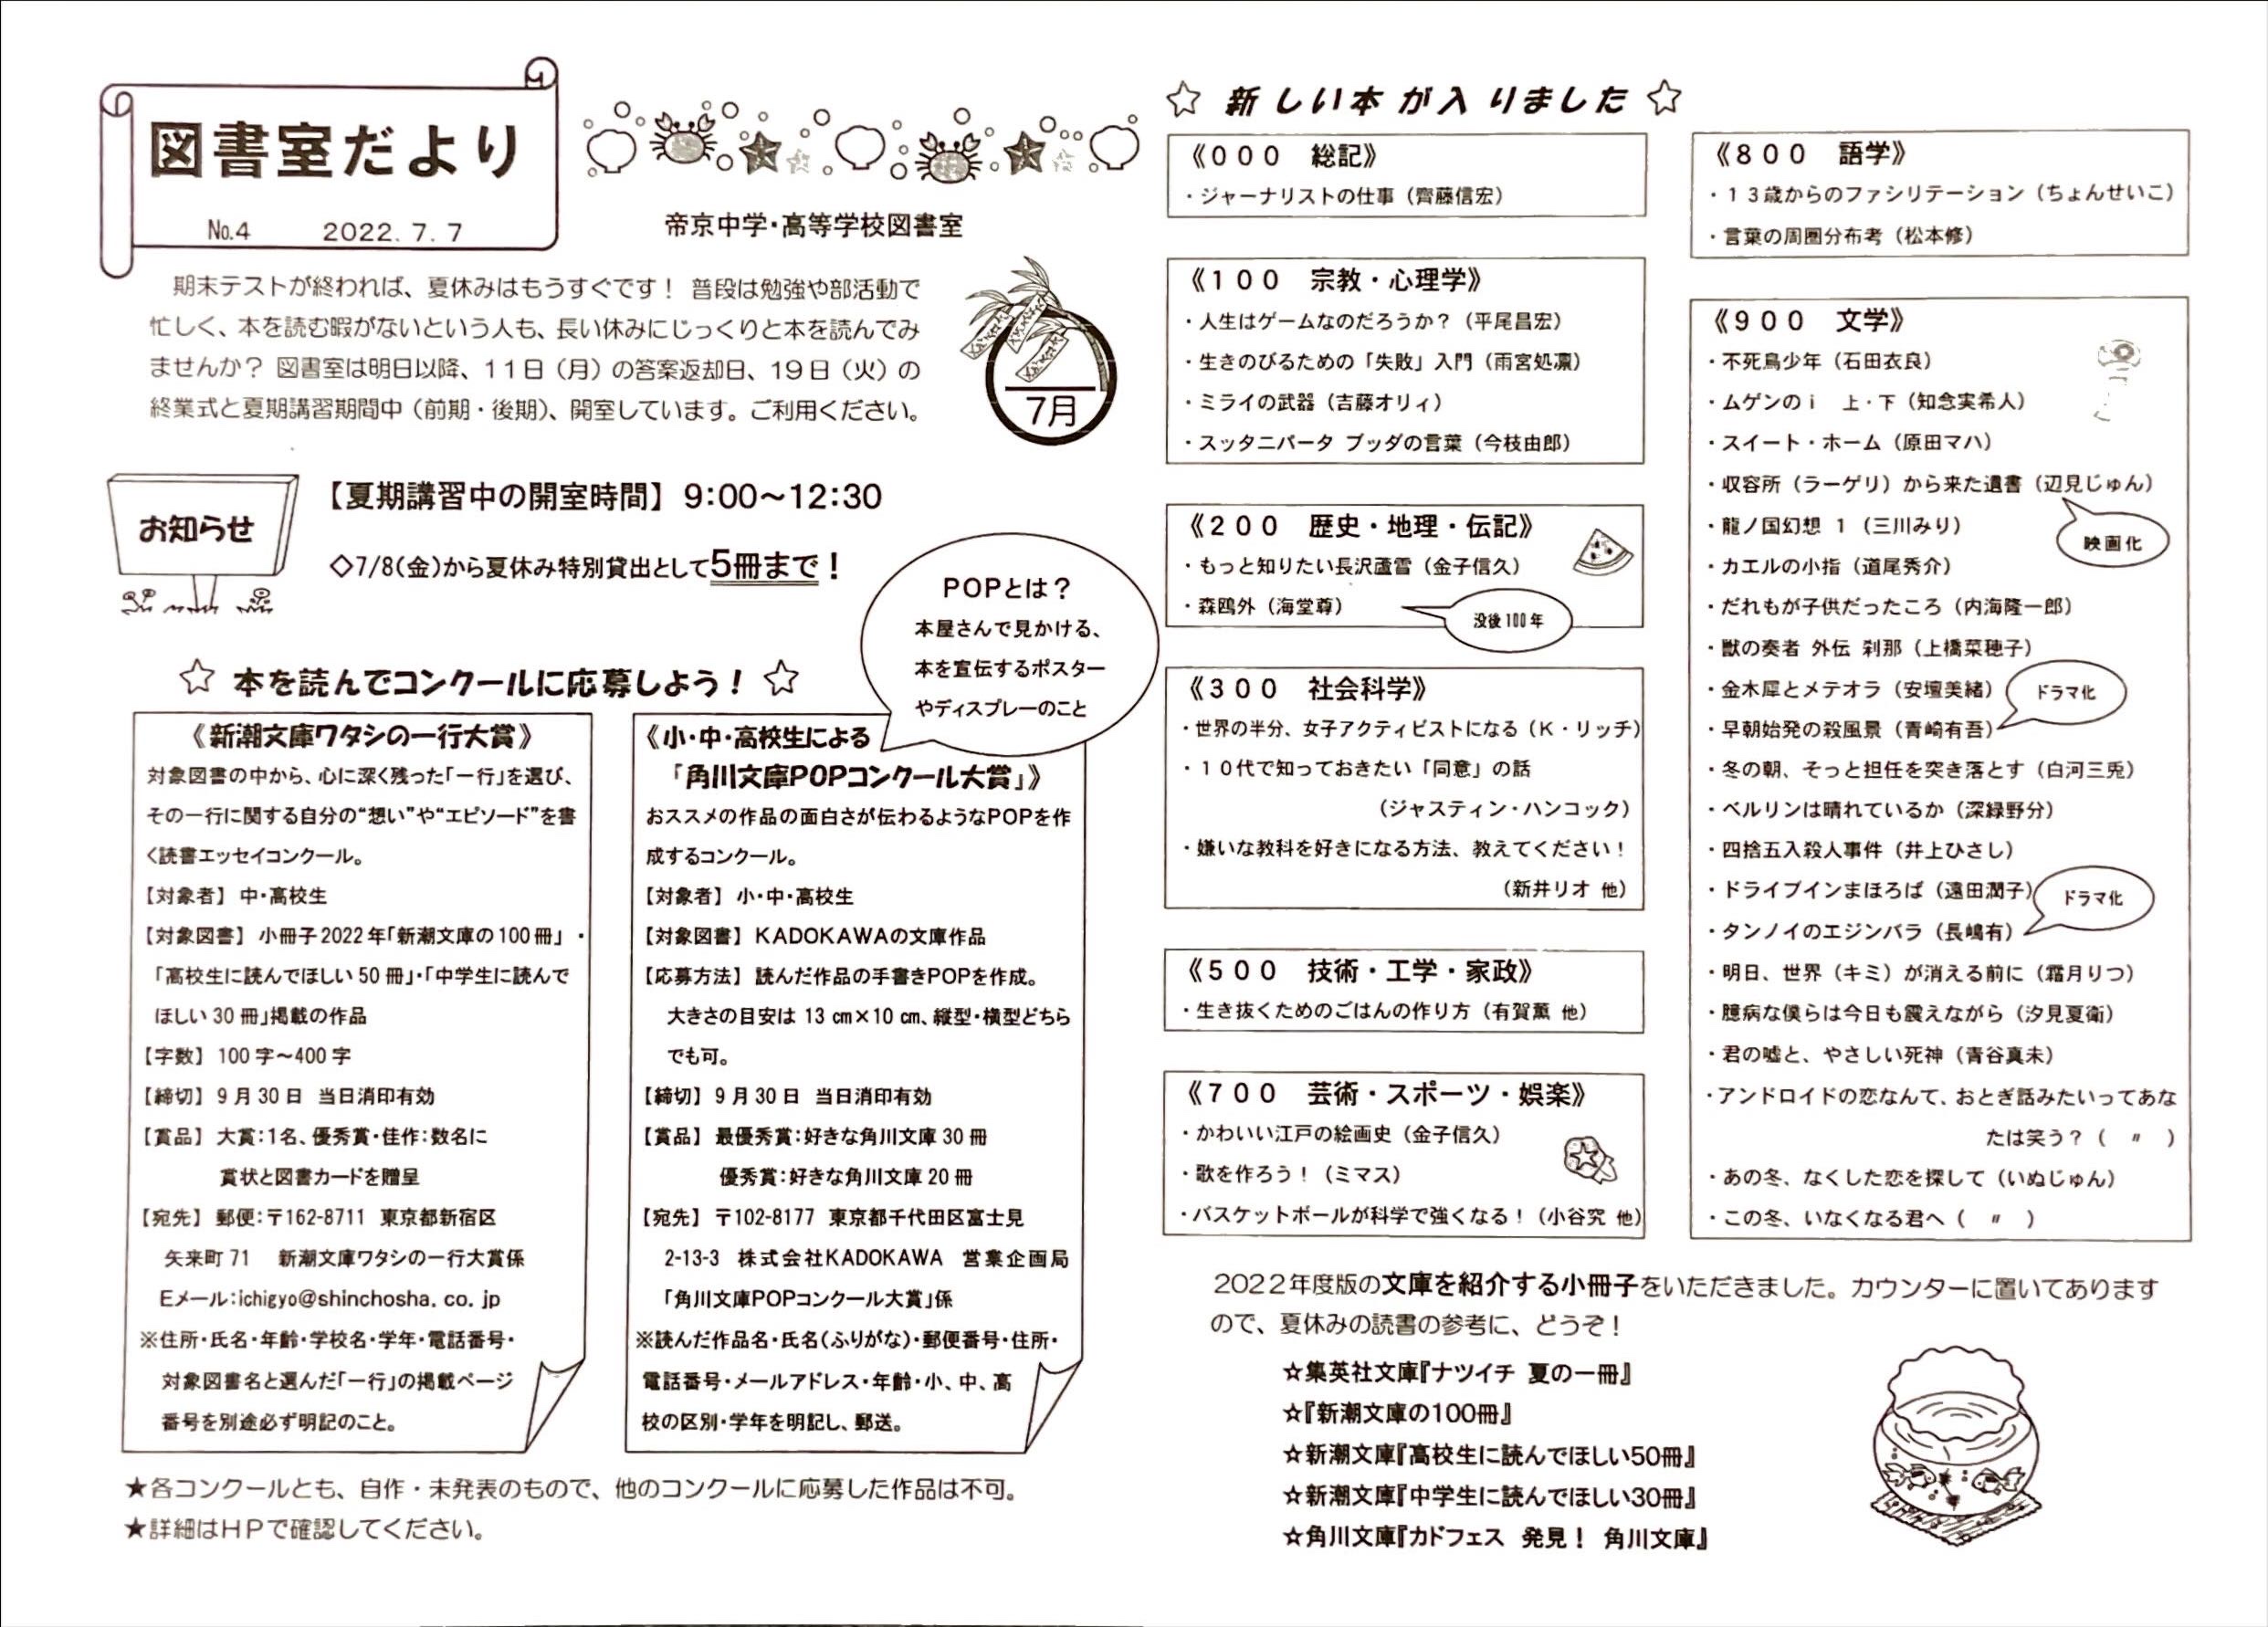 図書室だより
No.4 2022.7.7
帝京中学・高等学校図書室
期末テストが終われば、夏休みはもうすぐです！ 普段は勉強や部活動で
忙しく、本を読む暇がないという人も、長い休みにじっくりと本を読んでみ
ませんか？ 図書室は明日以降、11日（月）の答案返却日、19日（火）の
終業式と夏期講習期間中（前期・後期）、開室しています。ご利用ください。
7月
お知らせ
【夏期講習中の開室時間】9:00～12:30
◇7/8(金)から夏休み特別貸出として5冊まで！
POPとは？
本屋さんで見かける、
本を宣伝するポスター
やディスプレーのこと
☆ 本を読んでコンクールに応募しよう！ ☆
《新潮文庫ワタシの一行大賞》
対象図書の中から、心に深く残った「一行」を選び、
その一行に関する自分の“想い”や“エピソード”を書
く読書エッセイコンクール。
【対象者】 中・高校生
【対象図書】 小冊子2022年「新潮文庫の100冊」・
「高校生に読んでほしい50冊」・「中学生に読んで
ほしい30冊」掲載の作品
【字数】 100字～400字
【締切】 9月30日 当日消印有効
【賞品】 大賞：1名、優秀賞・佳作：数名に
賞状と図書カードを贈呈
【宛先】 郵便：〒162-8711 東京都新宿区
矢来町71 新潮文庫ワタシの一行大賞係
Eメール：ichigyo@shinchosha.co.jp
※住所・氏名・年齢・学校名・学年・電話番号・
対象図書名と選んだ「一行」の掲載ページ
番号を別途必ず明記のこと。
《小・中・高校生による
「角川文庫POPコンクール大賞」》
おススメの作品の面白さが伝わるようなPOPを作
成するコンクール。
【対象者】 小・中・高校生
【対象図書】 KADOKAWAの文庫作品
【応募方法】 読んだ作品の手書きPOPを作成。
大きさの目安は 13㎝×10㎝、縦型・横型どちら
でも可。
【締切】 9月30日 当日消印有効
【賞品】 最優秀賞：好きな角川文庫30冊
優秀賞：好きな角川文庫20冊
【宛先】 〒102-8177 東京都千代田区富士見
2-13-3 株式会社KADOKAWA 営業企画局
「角川文庫POPコンクール大賞」係
※読んだ作品名・氏名（ふりがな）・郵便番号・住所・
電話番号・メールアドレス・年齢・小、中、高
校の区別・学年を明記し、郵送。
★各コンクールとも、自作・未発表のもので、他のコンクールに応募した作品は不可。
★詳細はHPで確認してください。
☆ 新しい本が入りました ☆
《000 総記》
・ジャーナリストの仕事（齊藤信宏）
《100 宗教・心理学》
・人生はゲームなのだろうか？（平尾昌宏）
・生きのびるための「失敗」入門（雨宮処凛）
・ミライの武器（吉藤オリィ）
・スッタニパータ ブッダの言葉（今枝由郎）
《200 歴史・地理・伝記》
・もっと知りたい長沢蘆雪（金子信久）
・森鴎外（海堂尊）
没後100年
《300 社会科学》
・世界の半分、女子アクティビストになる（K・リッチ）
・10代で知っておきたい「同意」の話
（ジャスティン・ハンコック）
・嫌いな教科を好きになる方法、教えてください！
（新井リオ 他）
《500 技術・工学・家政》
・生き抜くためのごはんの作り方（有賀薫 他）
《700 芸術・スポーツ・娯楽》
・かわいい江戸の絵画史（金子信久）
・歌を作ろう！（ミマス）
・バスケットボールが科学で強くなる！（小谷究 他）
《800 語学》
・13歳からのファシリテーション（ちょんせいこ）
・言葉の周圏分布考（松本修）
《900 文学》
・不死鳥少年（石田衣良）
・ムゲンのi 上・下（知念実希人）
・スイート・ホーム（原田マハ）
・収容所（ラーゲリ）から来た遺書（辺見じゅん）
映画化
・龍ノ国幻想 1（三川みり）
・カエルの小指（道尾秀介）
・だれもが子供だったころ（内海隆一郎）
・獣の奏者 外伝 刹那（上橋菜穂子）
・金木犀とメテオラ（安壇美緒）
ドラマ化
・早朝始発の殺風景（青崎有吾）
・冬の朝、そっと担任を突き落とす（白河三兎）
・ベルリンは晴れているか（深緑野分）
・四捨五入殺人事件（井上ひさし）
・ドライブインまほろば（遠田潤子）
ドラマ化
・タンノイのエジンバラ（長嶋有）
・明日、世界（キミ）が消える前に（霜月りつ）
・臆病な僕らは今日も震えながら（汐見夏衛）
・君の嘘と、やさしい死神（青谷真未）
・アンドロイドの恋なんて、おとぎ話みたいってあな
たは笑う？（ 〃 ）
・あの冬、なくした恋を探して（いぬじゅん）
・この冬、いなくなる君へ（ 〃 ）
2022年度版の文庫を紹介する小冊子をいただきました。カウンターに置いてあります
ので、夏休みの読書の参考に、どうぞ！
☆集英社文庫『ナツイチ 夏の一冊』
☆『新潮文庫の100冊』
☆新潮文庫『高校生に読んでほしい50冊』
☆新潮文庫『中学生に読んでほしい30冊』
☆角川文庫『カドフェス 発見！ 角川文庫』